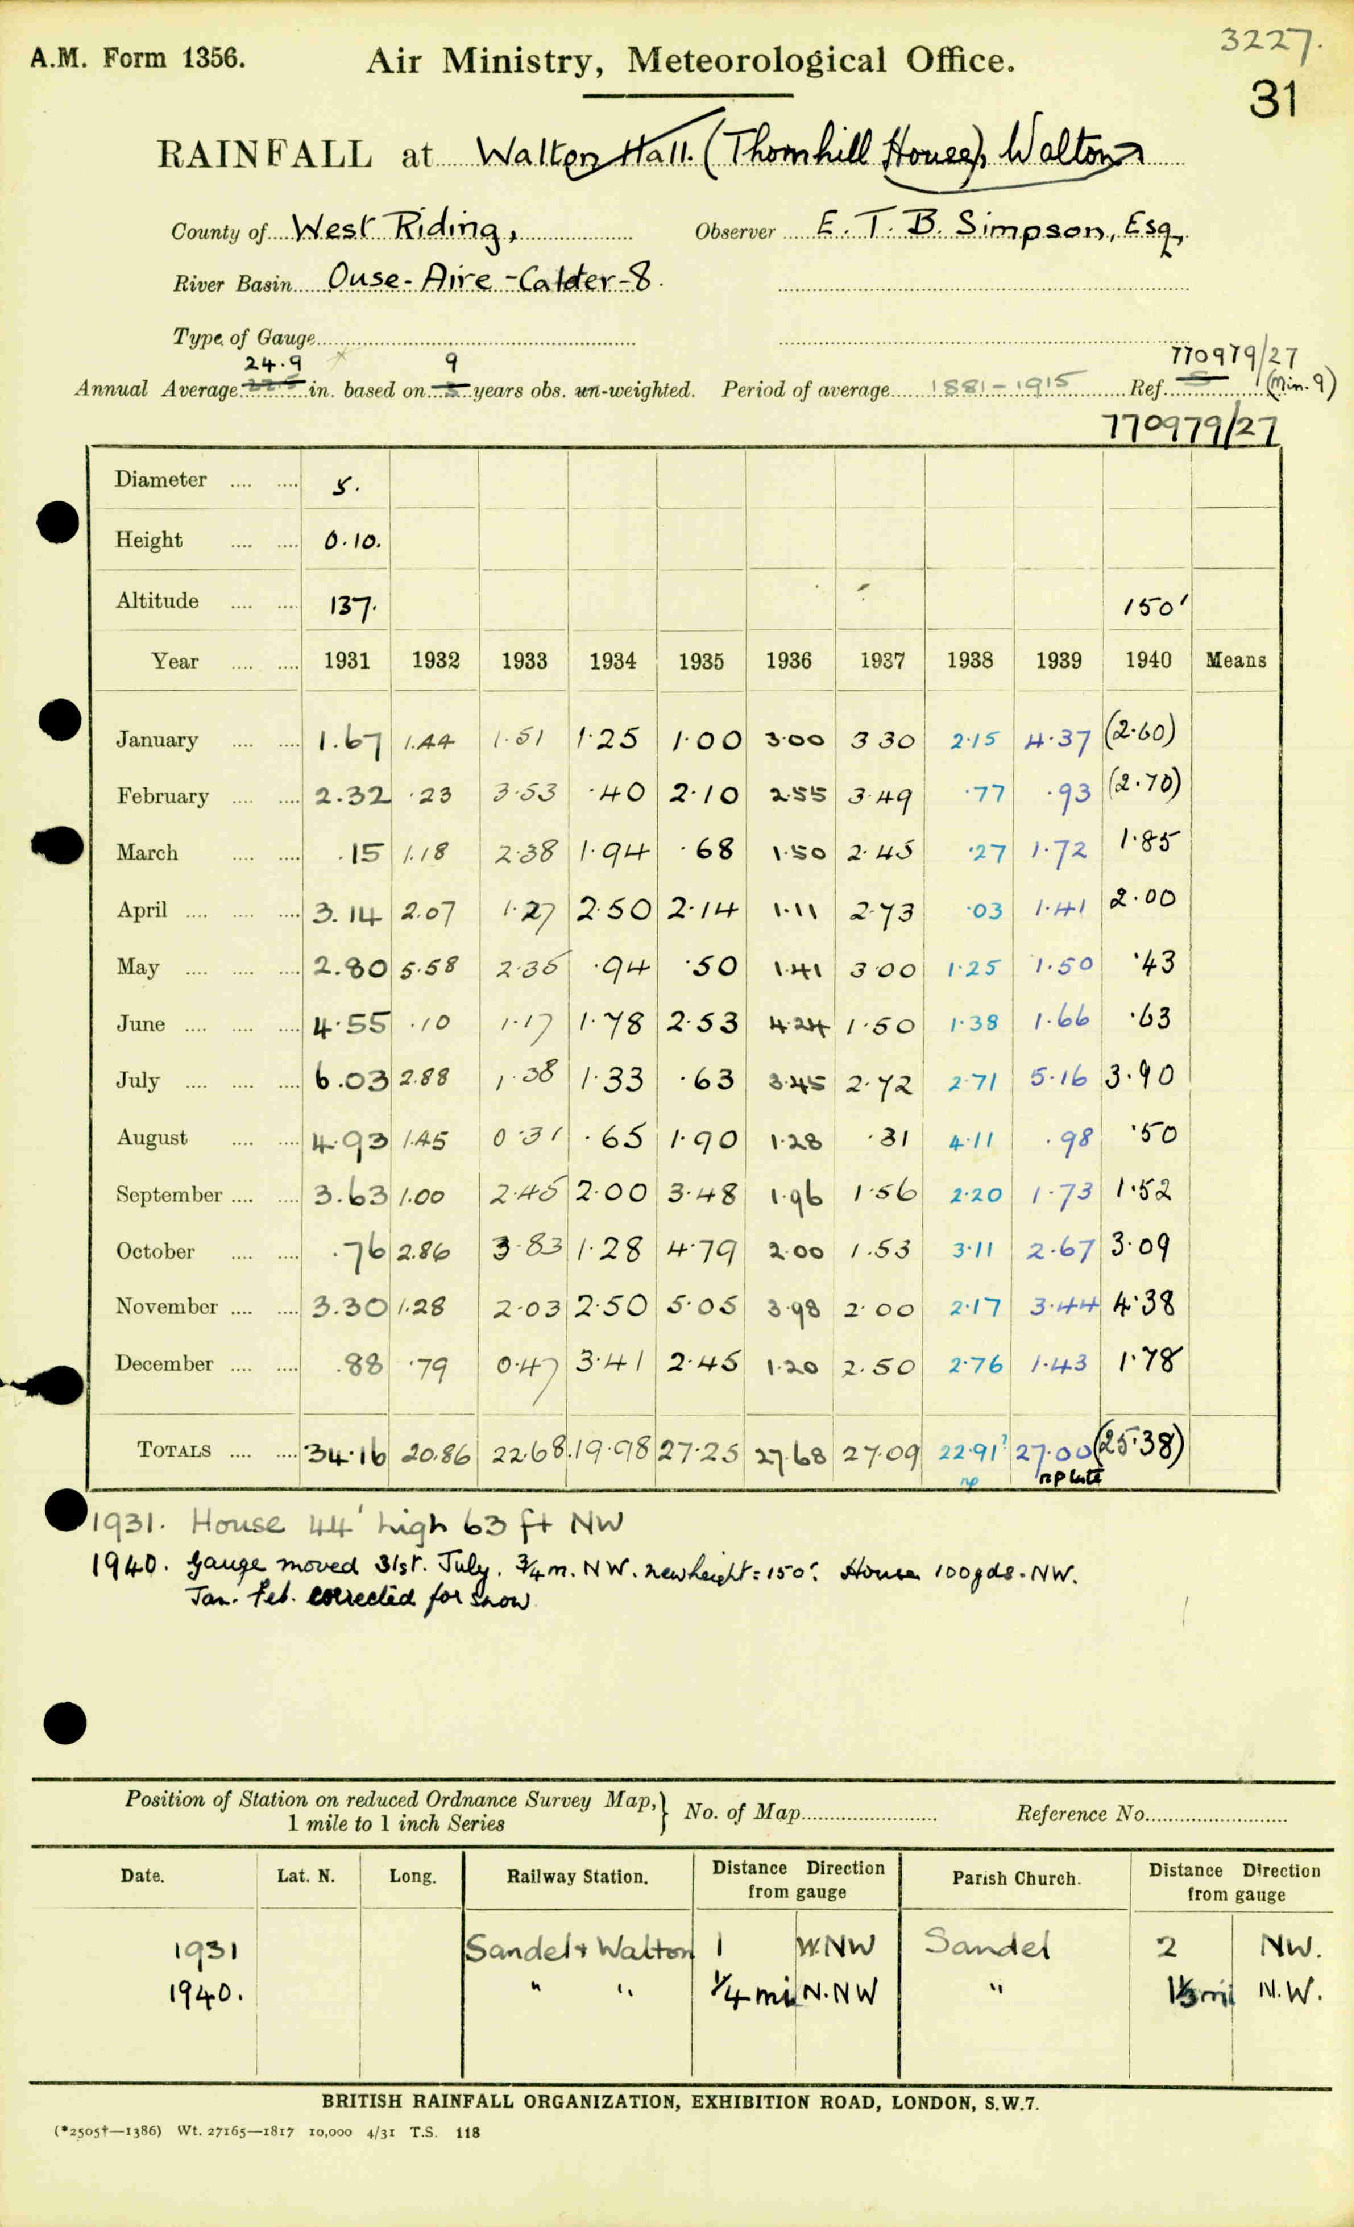 3227.
A.M. Form 1356. Air Ministry, Meteorological Office.
31
RAINFALL at Walton Hall. (Thornhill House), Walton
County of West Riding, Observer E. T. B. Simpson, Esq,
River Basin Ouse-Aire-Calder-8.
Type of Gauge
24.9 9 770979/27
Annual Average in. based on years obs. un-weighted. Period of average 1881-1915 Ref. 5 (Min. 9)
770979/27
Diameter 5.
Height 0.10.
Altitude 137. 150'
Year 1931 1932 1933 1934 1935 1936 1937 1938 1939 1940 Means
January 1.67 1.44 1.51 1.25 1.00 3.00 3 30 2.15 4.37 (2.60)
February 2.32 .23 3.53 .40 2.10 2.55 3.49 .77 .93 (2.70)
March .15 1.18 2.38 1.94 .68 1.50 2.45 .27 1.72 1.85
April 3.14 2.07 1.27 2.50 2.14 1.11 2.73 .03 1.41 2.00
May 2.80 5.58 2.35 .94 .50 1.41 3.00 1.25 1.50 .43
June 4.55 .10 1.17 1.78 2.53 4.24 1.50 1.38 1.66 .63
July 6.03 2.88 1.38 1.33 .63 3.45 2.72 2.71 5.16 3.90
August 4.93 1.45 0.31 .65 1.90 1.28 .31 4.11 .98 .50
September 3.63 1.00 2.45 2.00 3.48 1.96 1.56 2.20 1.73 1.52
October .76 2.86 3.83 1.28 4.79 2.00 1.53 3.11 2.67 3.09
November 3.30 1.28 2.03 2.50 5.05 3.98 2.00 2.17 3.44 4.38
December .88 .79 0.47 3.41 2.45 1.20 2.50 2.76 1.43 1.78
TOTALS 34.16 20.86 22.68. 19.98 27.25 27.68 27.09 22.91? 27.00 (25.38)
np np late
1931. House 44' high 63 ft NW
1940. Gauge moved 31st. July. 3/4 m. NW. new height = 150'. House 100yds. NW.
Jan. Feb. corrected for snow
Position of Station on reduced Ordnance Survey Map, 1 mile to 1 inch Series } No. of Map Reference No.
Date. Lat. N. Long. Railway Station. Distance Direction from gauge Parish Church. Distance Direction from gauge
1931 Sandel & Walton 1 W.NW Sandel 2 NW.
1940. " " 1/4 mi N.NW " 1⅓ mil N.W.
BRITISH RAINFALL ORGANIZATION, EXHIBITION ROAD, LONDON, S.W.7.
(*2505†—1386) Wt. 27165—1817 10,000 4/31 T.S. 118